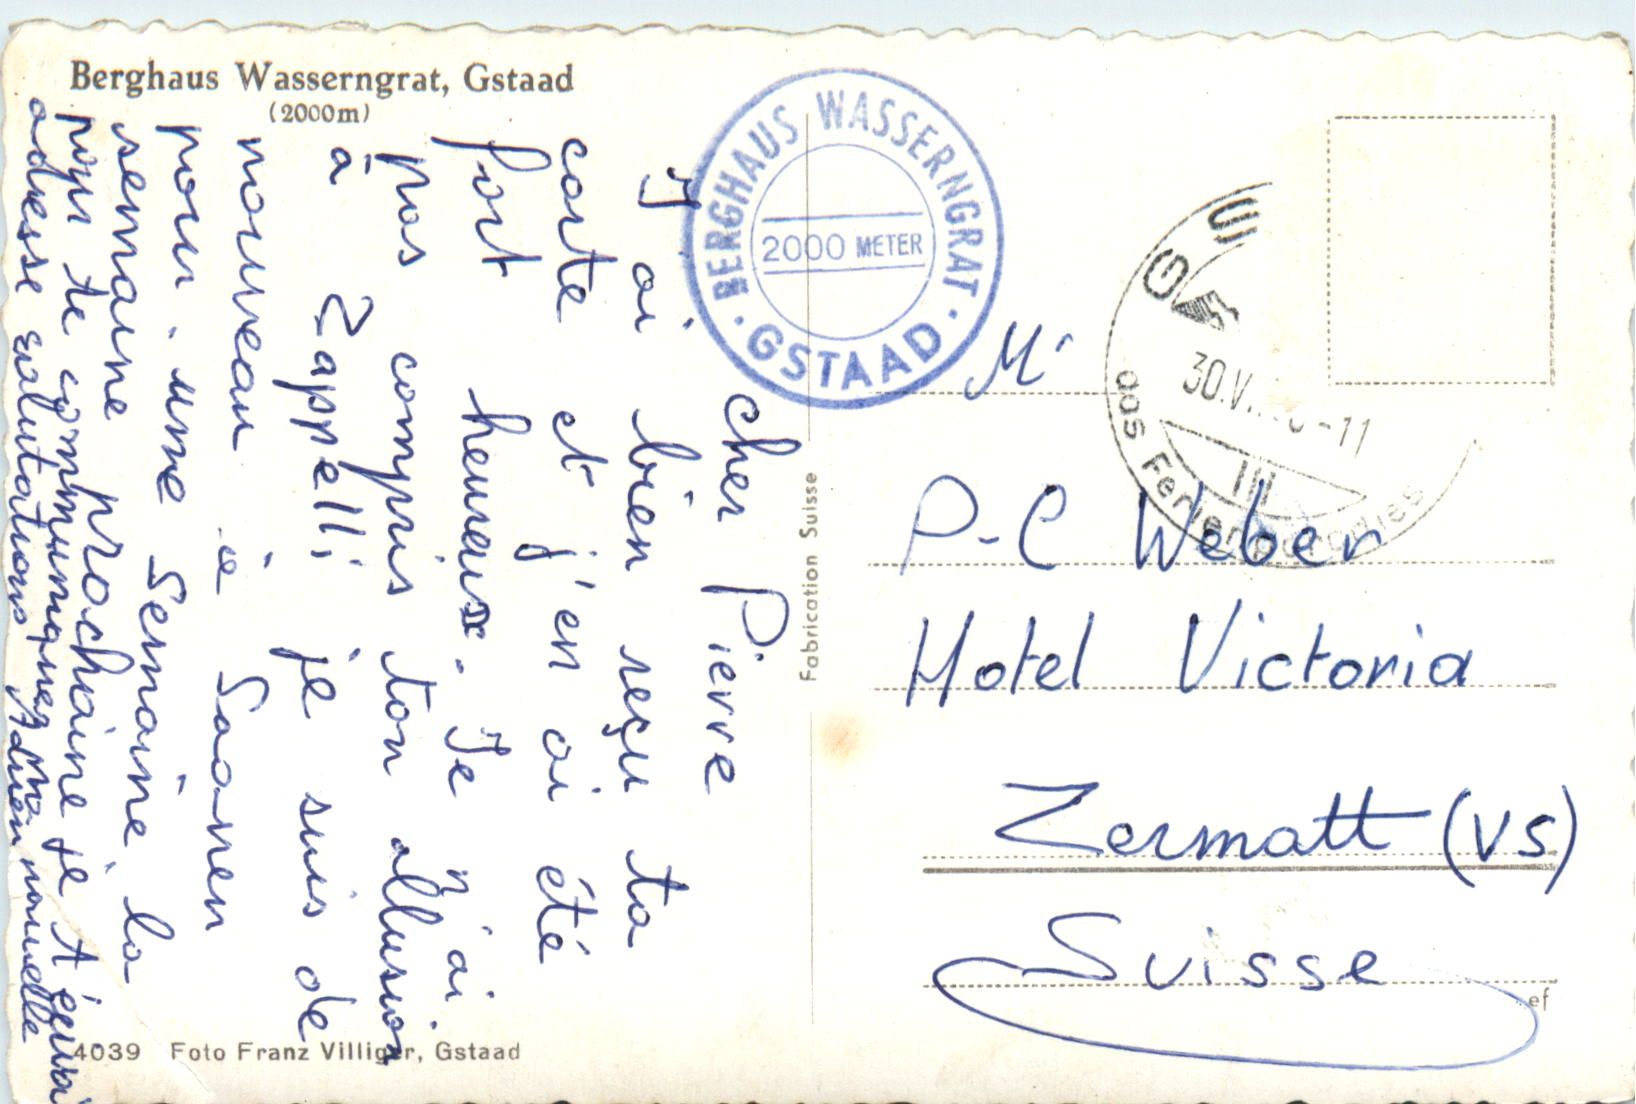 Berghaus Wasserngrat, Gstaad
(2000m)
BERGHAUS WASSERNGRAT
2000 METER
· GSTAAD ·
cher Pierre
J'ai bien reçu ta
carte et j'en ai été
fort heureux. Je n'ai
pas compris ton allusion
à Zappelli je suis de
nouveau à Saanen
pour une Semaine la
semaine prochaine je t'écrirai
pour te communiquer ma nouvelle
adresse salutations Adrien
Fabrication Suisse
GS
30.V -11
005 Ferienparadies
III
Mr
P-C Weber
Hotel Victoria
Zermatt (VS)
Suisse
ef
4039 Foto Franz Villiger, Gstaad